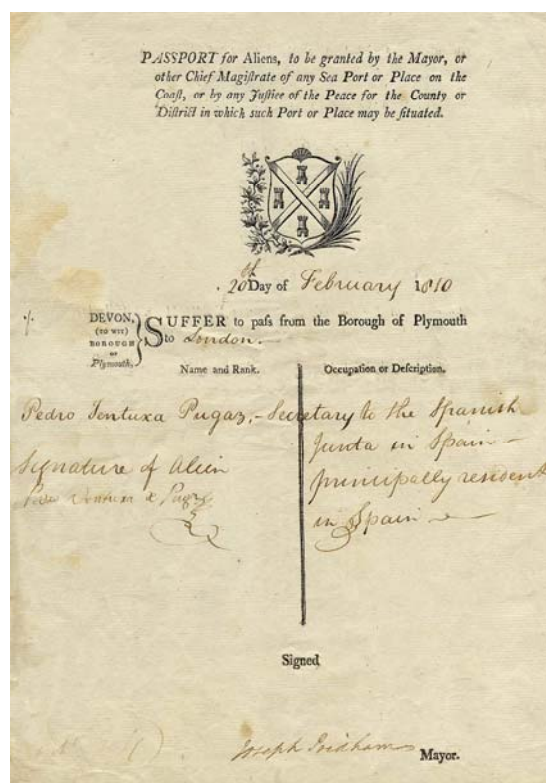 PASSPORT for Aliens, to be granted by the Mayor, or
other Chief Magiſtrate of any Sea Port or Place on the
Coaſt, or by any Juſtice of the Peace for the County or
Diſtrict in which ſuch Port or Place may be ſituated.
20th Day of February 1810
DEVON,
(TO WIT)
BOROUGH
OF
Plymouth,
SUFFER to paſs from the Borough of Plymouth
to London.
Name and Rank.
Occupation or Deſcription.
Pedro Ventuxa Pugaz,- Secretary to the Spanish
Junta in Spain -
principally resident
in Spain
Signature of Alien
Pedro Ventura de
Signed
Joseph Pridham Mayor.